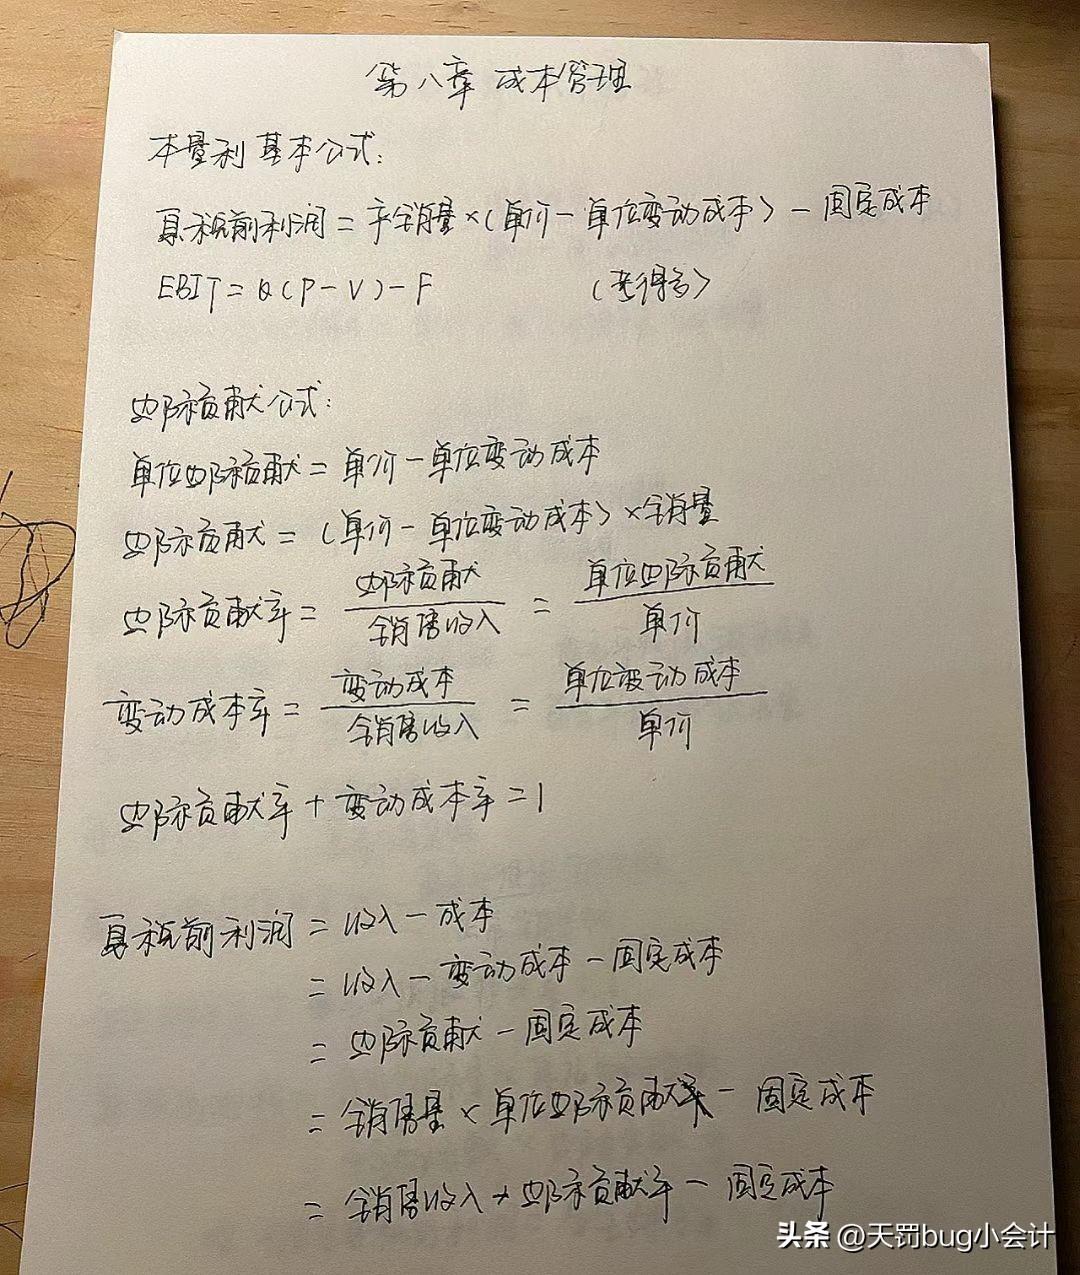 第八章 成本管理
本量利基本公式:
息税前利润=产销量×(单价-单位变动成本)-固定成本
EBIT=Q(P-V)-F (老得多)
边际贡献公式:
单位边际贡献=单价-单位变动成本
边际贡献=(单价-单位变动成本)×销量
边际贡献率=边际贡献/销售收入=单位边际贡献/单价
变动成本率=变动成本/销售收入=单位变动成本/单价
边际贡献率+变动成本率=1
息税前利润=收入-成本
=收入-变动成本-固定成本
=边际贡献-固定成本
=销售量×单位边际贡献-固定成本
=销售收入×边际贡献率-固定成本
头条 @天罚bug小会计